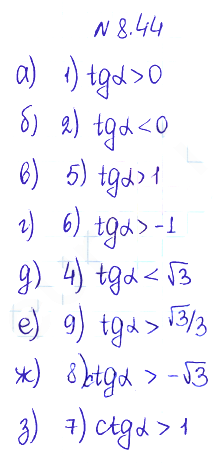 № 8.44
а) 1) tgα > 0
б) 2) tgα < 0
в) 5) tgα > 1
г) 6) tgα > -1
д) 4) tgα < √3
е) 9) tgα > √3/3
ж) 8) ctgα > -√3
з) 7) ctgα > 1